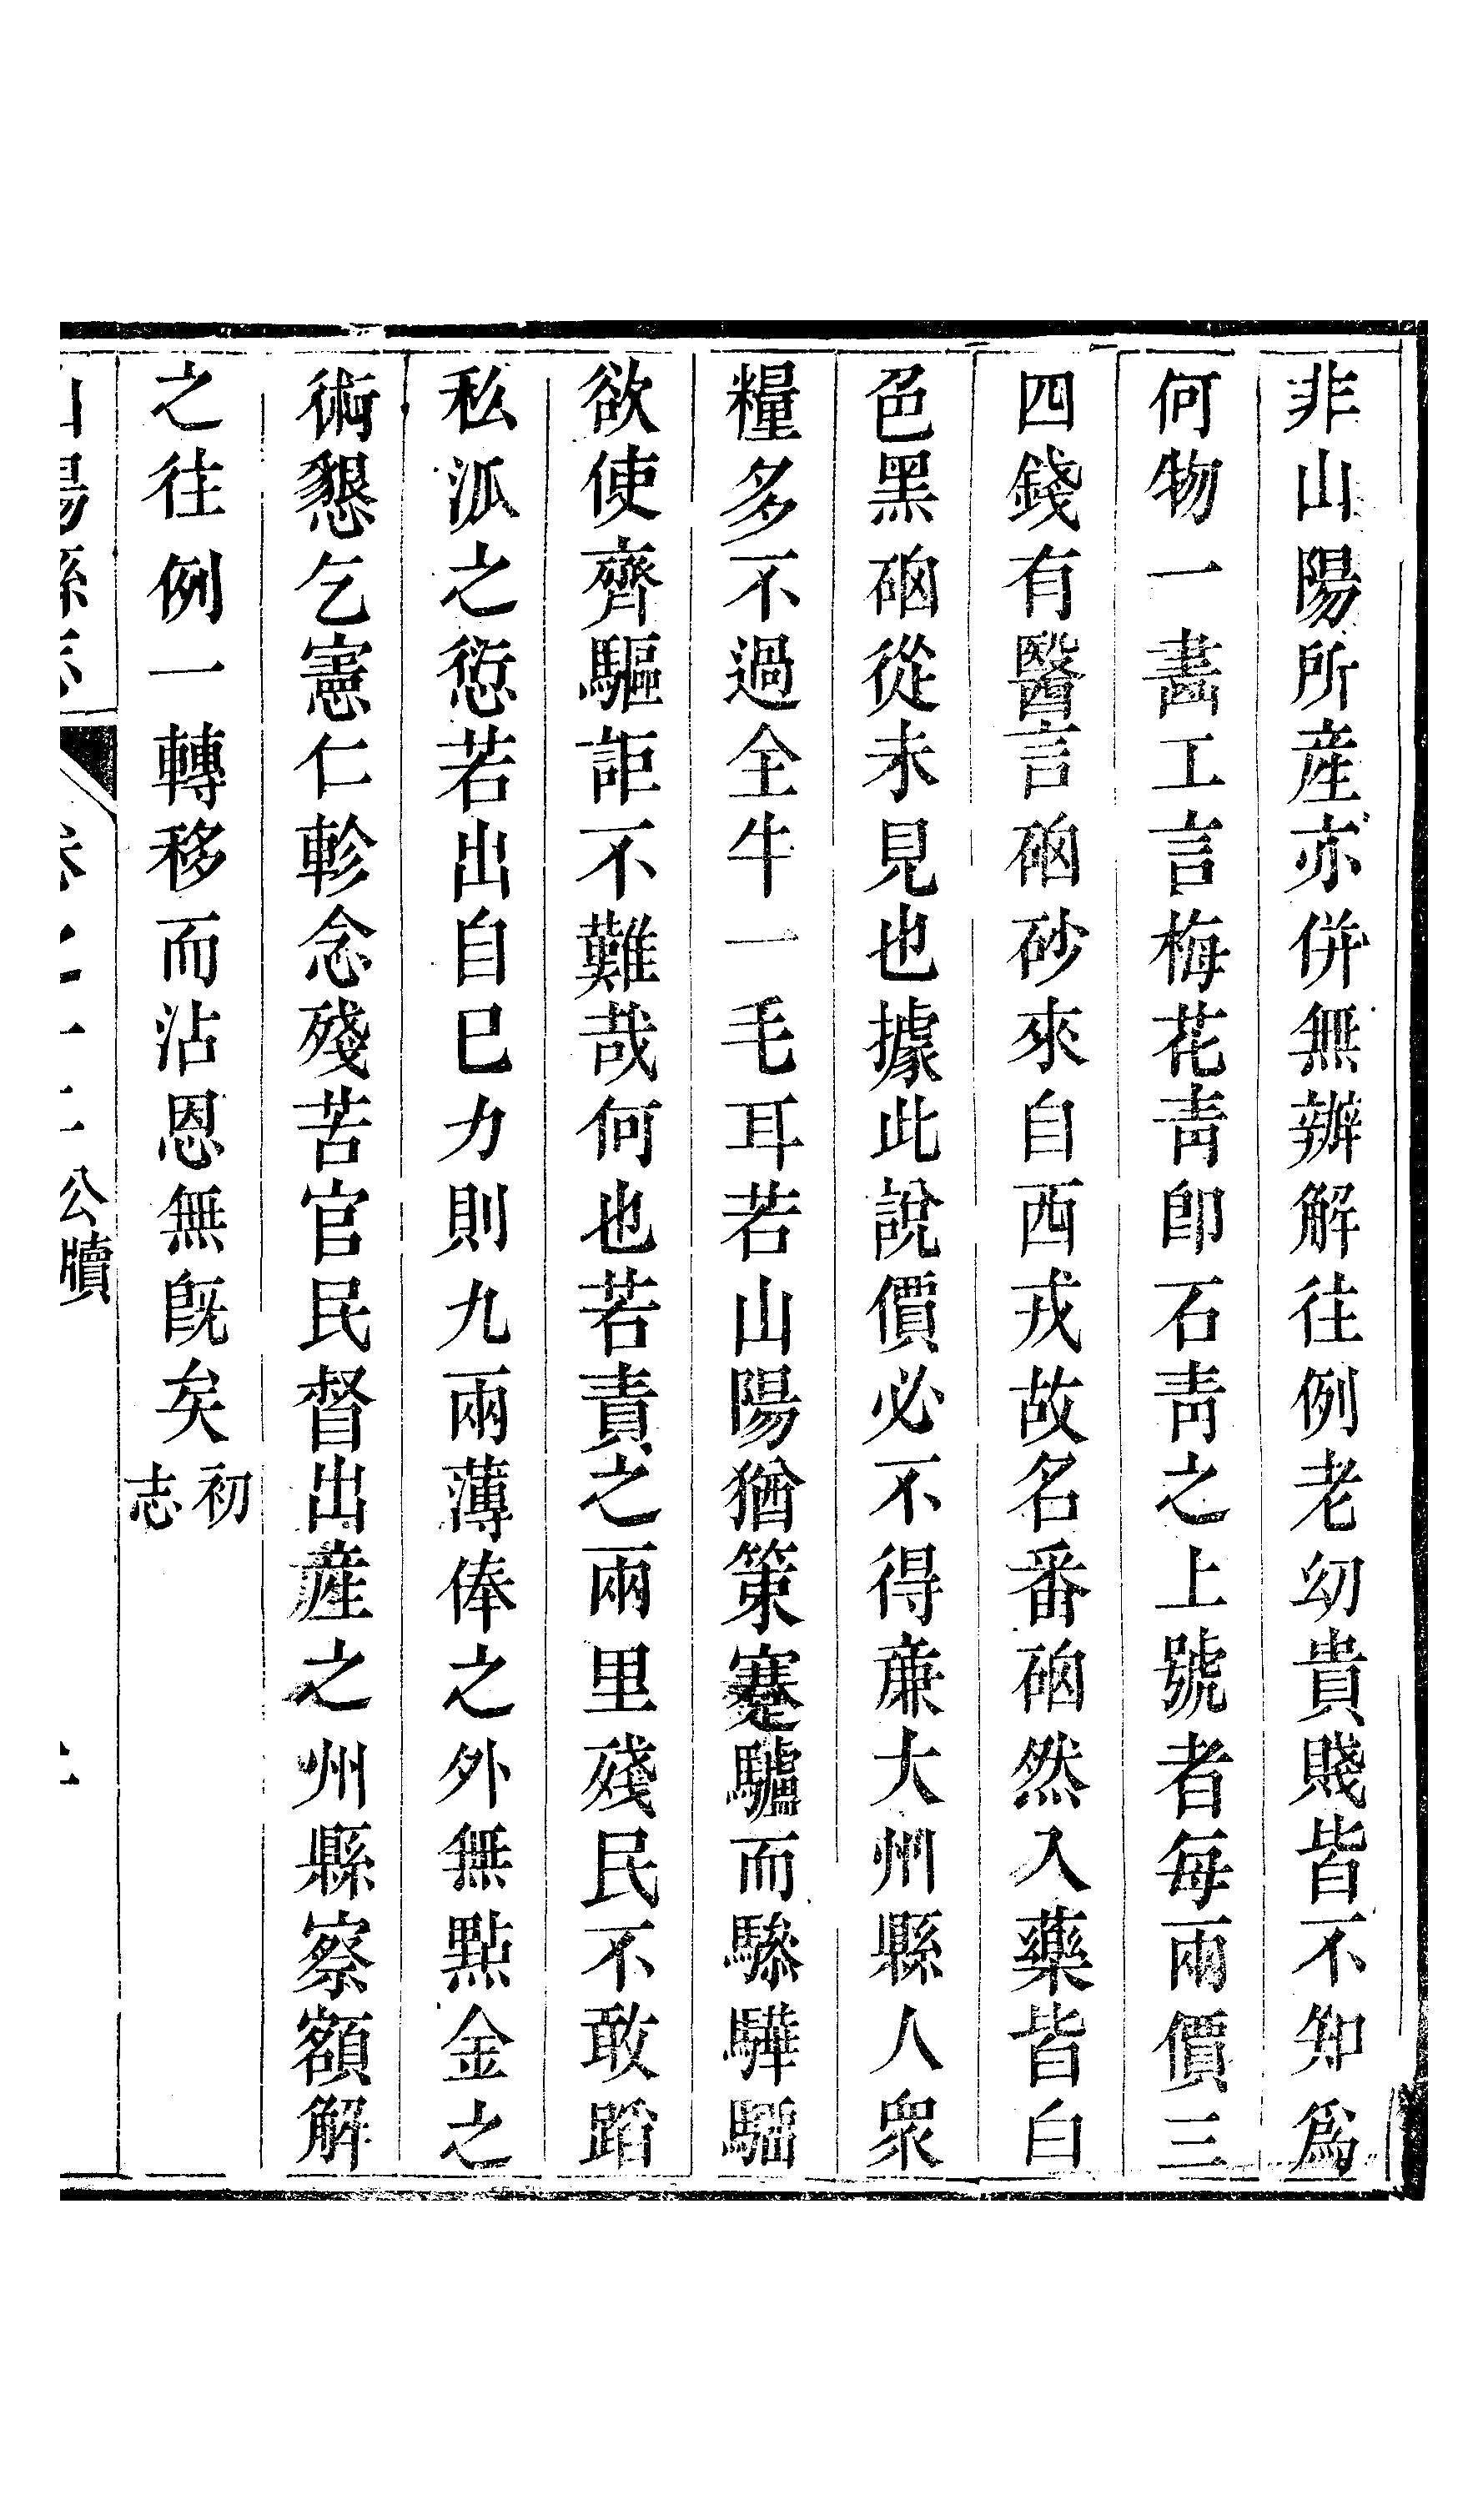 非山陽所産亦併無辦解往例老幼貴賤皆不知爲
何物一畫工言梅花靑卽石靑之上號者每兩價三
四錢有醫言硇砂來自西戎故名番硇然入藥皆白
色黑硇從未見也據此說價必不得亷大州縣人衆
糧多不過全牛一毛耳若山陽猶策蹇驢而驂驊騮
欲使齊驅詎不難哉何也若責之兩里殘民不敢蹈
私派之愆若出自巳力則九兩薄俸之外無點金之
術懇乞憲仁軫念殘苦官民督出産之州縣察額解
之往例一轉移而沾恩無旣矣初志
山陽縣志 公牘